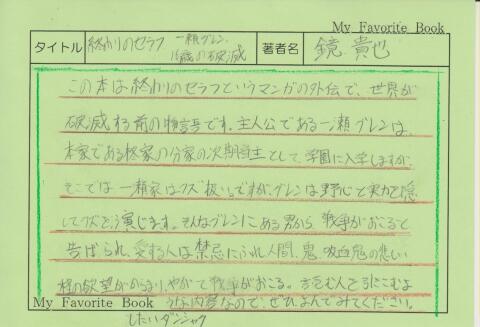 My Favorite Book
タイトル 終わりのセラフ 一瀬グレン、16歳の破滅 著者名 鏡 貴也
この本は終わりのセラフというマンガの外伝で、世界が
破滅する前の物語です。主人公である一瀬グレンは、
本家である柊家の分家の次期当主として、学園に入学しますが、
そこでは一瀬家はクズ扱いですが、グレンは野心と実力を隠
してクズを演じます。そんなグレンにある男から戦争がおこると
告げられ、愛する人は禁忌にふれ人間、鬼、吸血鬼の悲しい
欲望がからまり、やがて戦争がおこる。読む人
うな内容なので、ぜひよんでみてください。
My Favorite Book
したいダンシャク